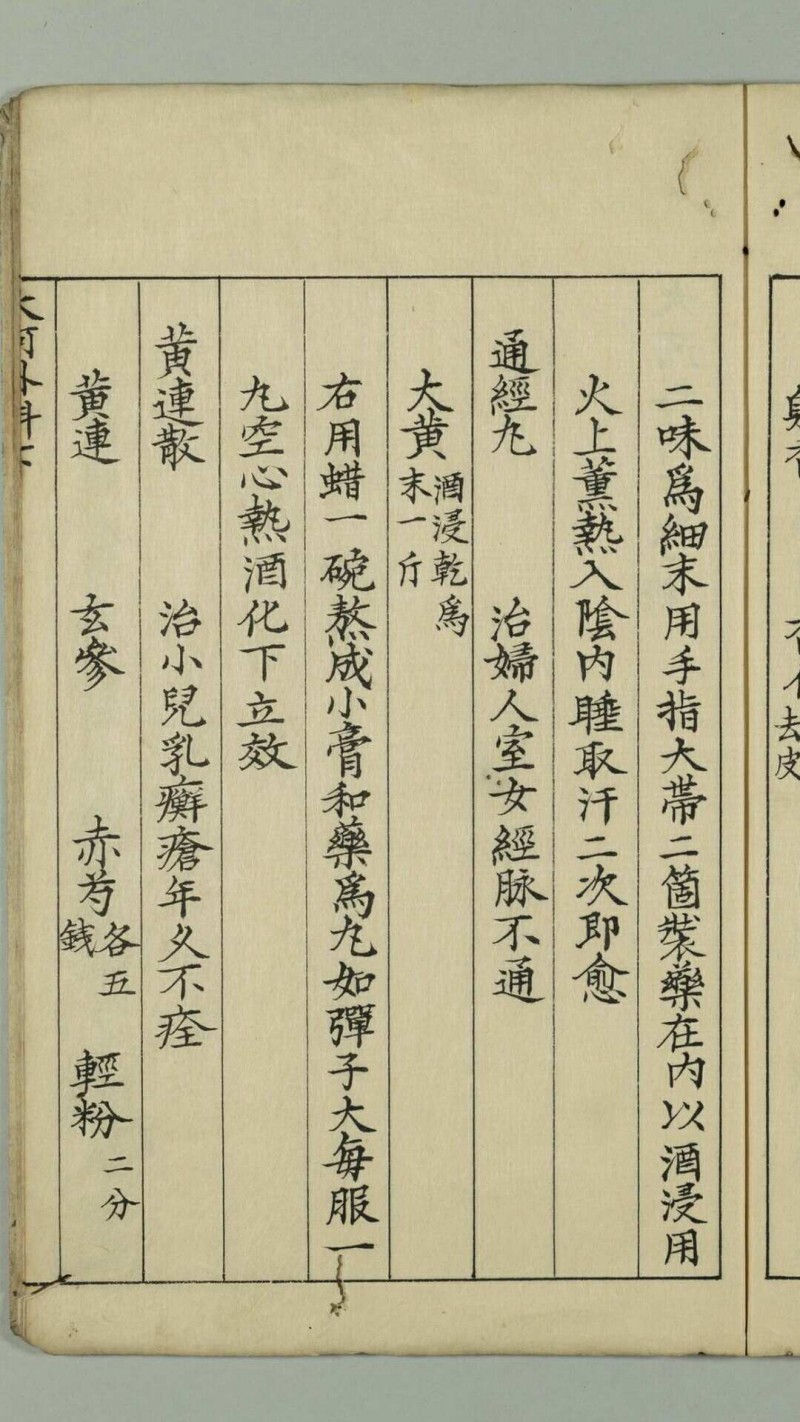 二味爲細末用手指大帶二箇裝藥在内以酒浸用
火上薰熱入陰内睡取汗二次即愈
通經丸　治婦人室女經脉不通
大黄　酒浸乾爲末一斤
右用蜡一碗熬成小膏和藥爲丸如彈子大每服一
丸空心熱酒化下立效
黄連散　治小兒乳癬瘡年久不痊
黄連　玄參　赤芍各五錢　輕粉二分